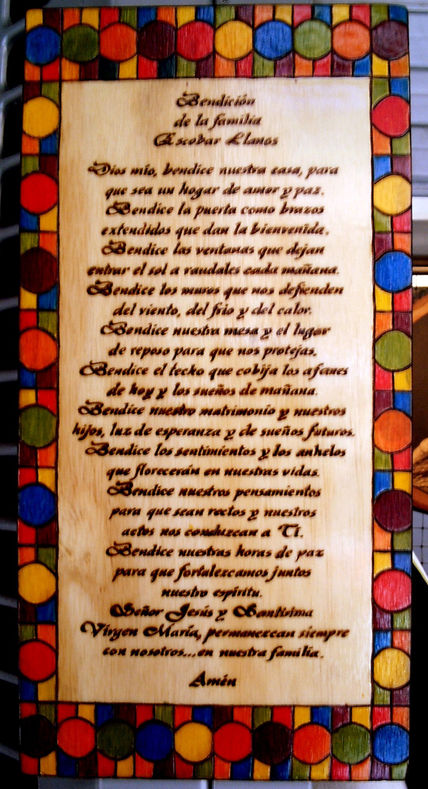 Bendición
de la familia
Escobar Llanos
Dios mío, bendice nuestra casa, para
que sea un hogar de amor y paz.
Bendice la puerta como brazos
extendidos que dan la bienvenida.
Bendice las ventanas que dejan
entrar el sol a raudales cada mañana.
Bendice los muros que nos defienden
del viento, del frío y del calor.
Bendice nuestra mesa y el lugar
de reposo para que nos protejas.
Bendice el techo que cobija los afanes
de hoy y los sueños de mañana.
Bendice nuestro matrimonio y nuestros
hijos, luz de esperanza y de sueños futuros.
Bendice los sentimientos y los anhelos
que florecerán en nuestras vidas.
Bendice nuestros pensamientos
para que sean rectos y nuestros
actos nos conduzcan a Ti.
Bendice nuestras horas de paz
para que fortalezcamos juntos
nuestro espíritu.
Señor Jesús y Santísima
Virgen María, permanezcan siempre
con nosotros...en nuestra familia.
Amén